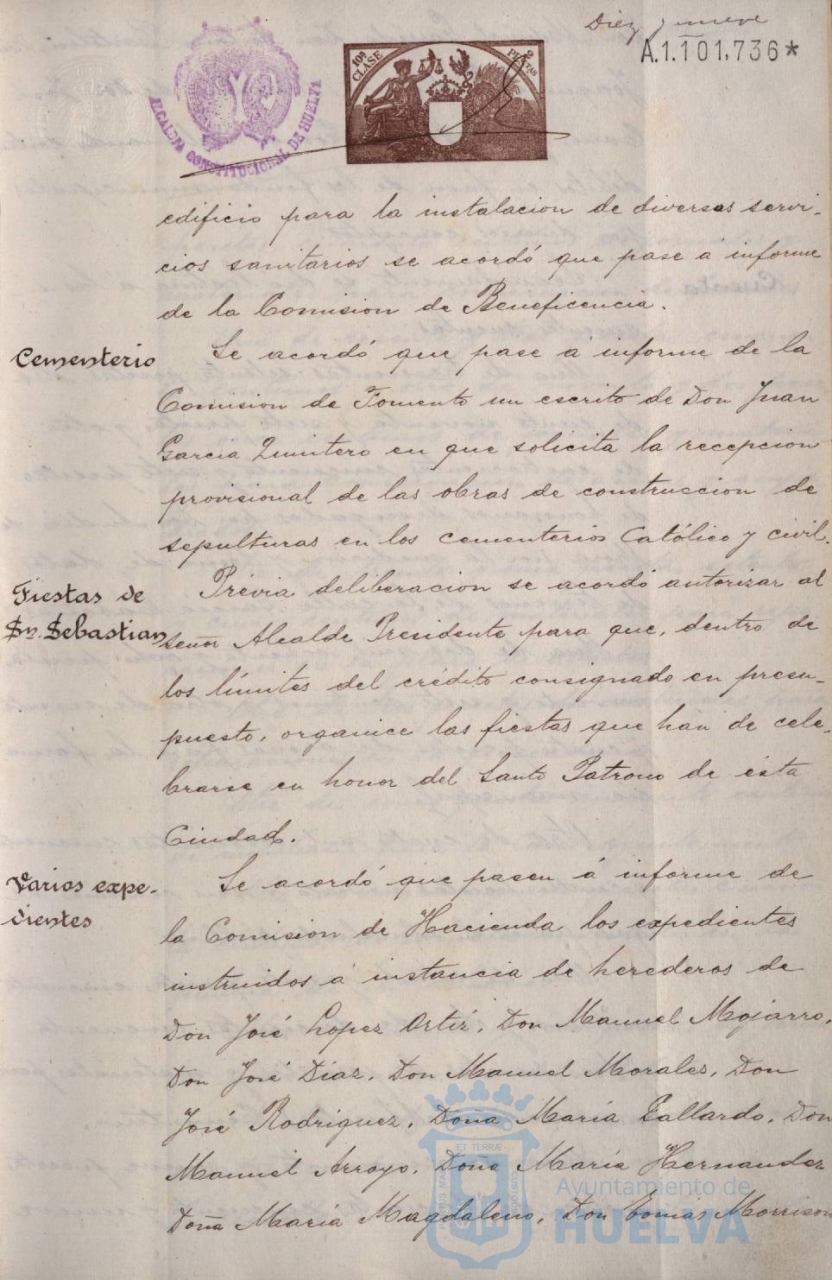 Diez y nueve
A.1.101.736*
10ª CLASE
2 PTAS
ALCALDIA CONSTITUCIONAL DE HUELVA
edificio para la instalacion de diversos servi-
cios sanitarios se acordó que pase á informe
de la Comision de Beneficencia.
Cementerio
Se acordó que pase á informe de la
Comision de Fomento un escrito de Don Juan
Garcia Quintero en que solicita la recepcion
provisional de las obras de construccion de
sepulturas en los cementerios Católico y civil.
Fiestas de
Sn. Sebastian
Prévia deliberacion se acordó autorizar al
Señor Alcalde Presidente para que, dentro de
los límites del crédito consignado en presu-
puesto, organice las fiestas que han de cele-
brarse en honor del Santo Patrono de ésta
Ciudad.
Varios expe-
dientes
Se acordó que pasen á informe de
la Comision de Hacienda los expedientes
instruidos á instancia de herederos de
Don José Lopez Ortiz, Don Manuel Mojarro,
Don José Diaz, Don Manuel Morales, Don
José Rodriguez, Doña María Gallardo, Don
Manuel Arroyo, Doña María Hernandez
Doña María Magdaleno, Don Tomas Morrison
Ayuntamiento de
HUELVA